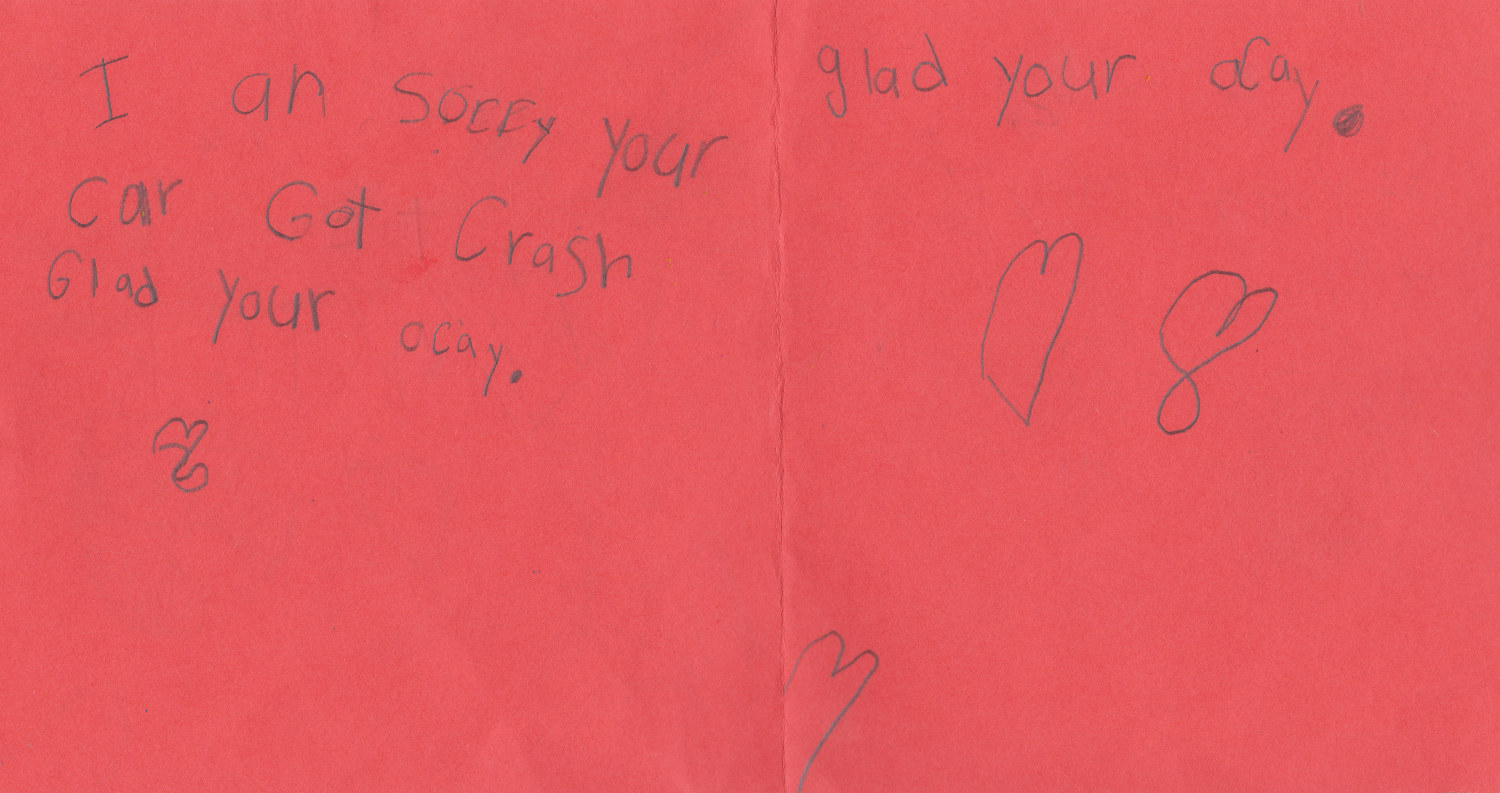 I an sorry your
car Got Crash
Glad your ocay.
glad your ocay.